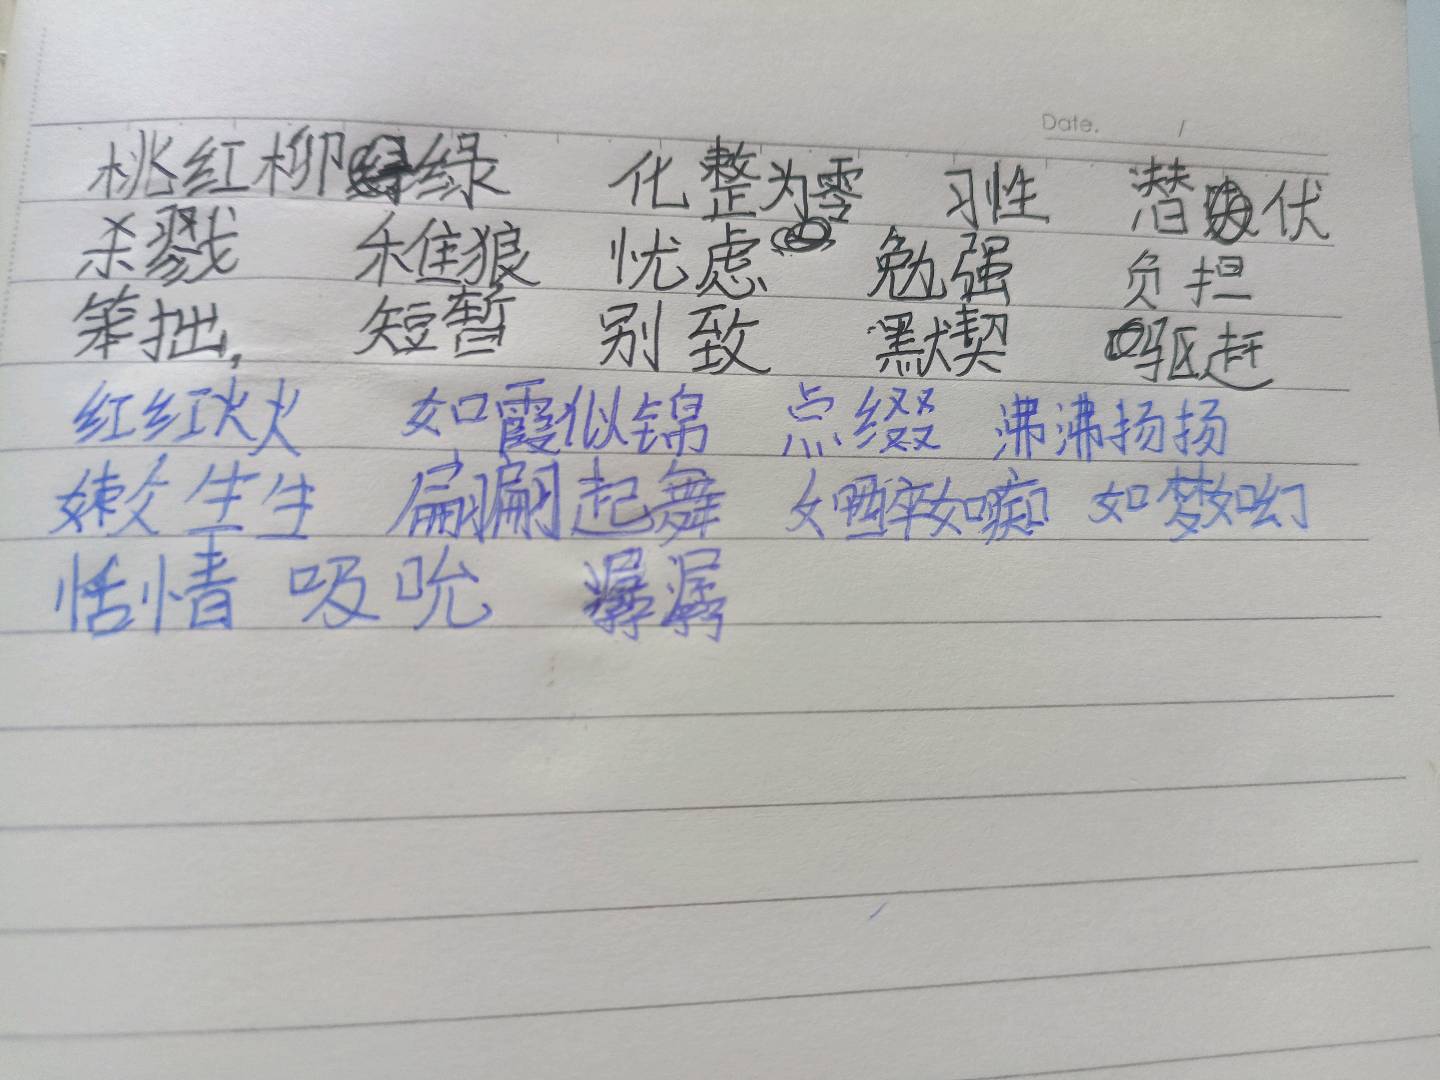 Date. /
桃红柳绿 化整为零 习性 潜伏
杀戮 稚狼 忧虑 勉强 负担
笨拙, 短暂 别致 默契 驱赶
红红火火 如霞似锦 点缀 沸沸扬扬
嫩生生 翩翩起舞 如醉如痴 如梦如幻
恬情 吸吮 潺潺